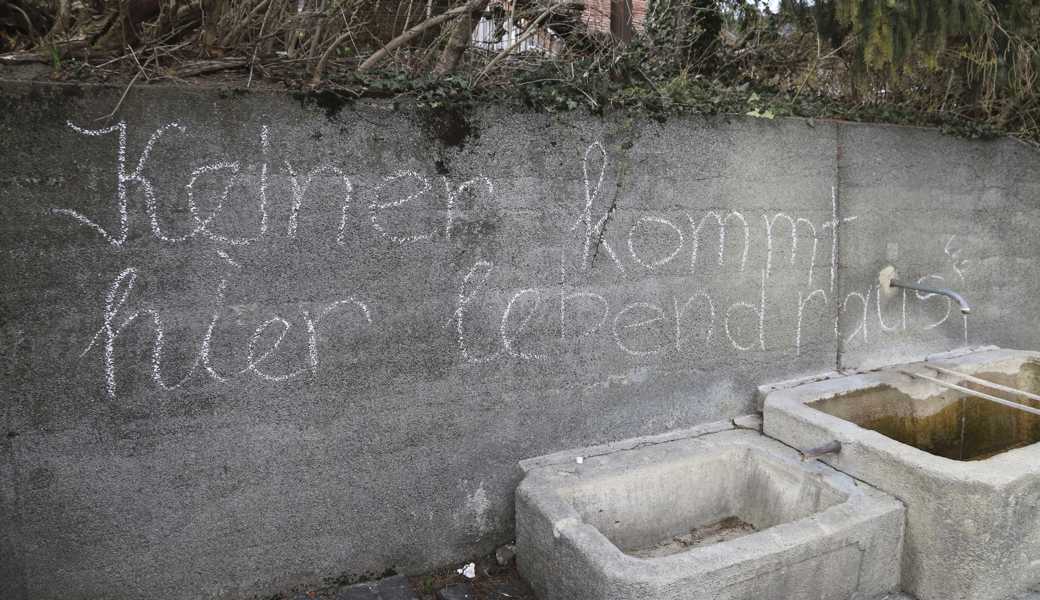 Keiner kommt
hier lebend raus